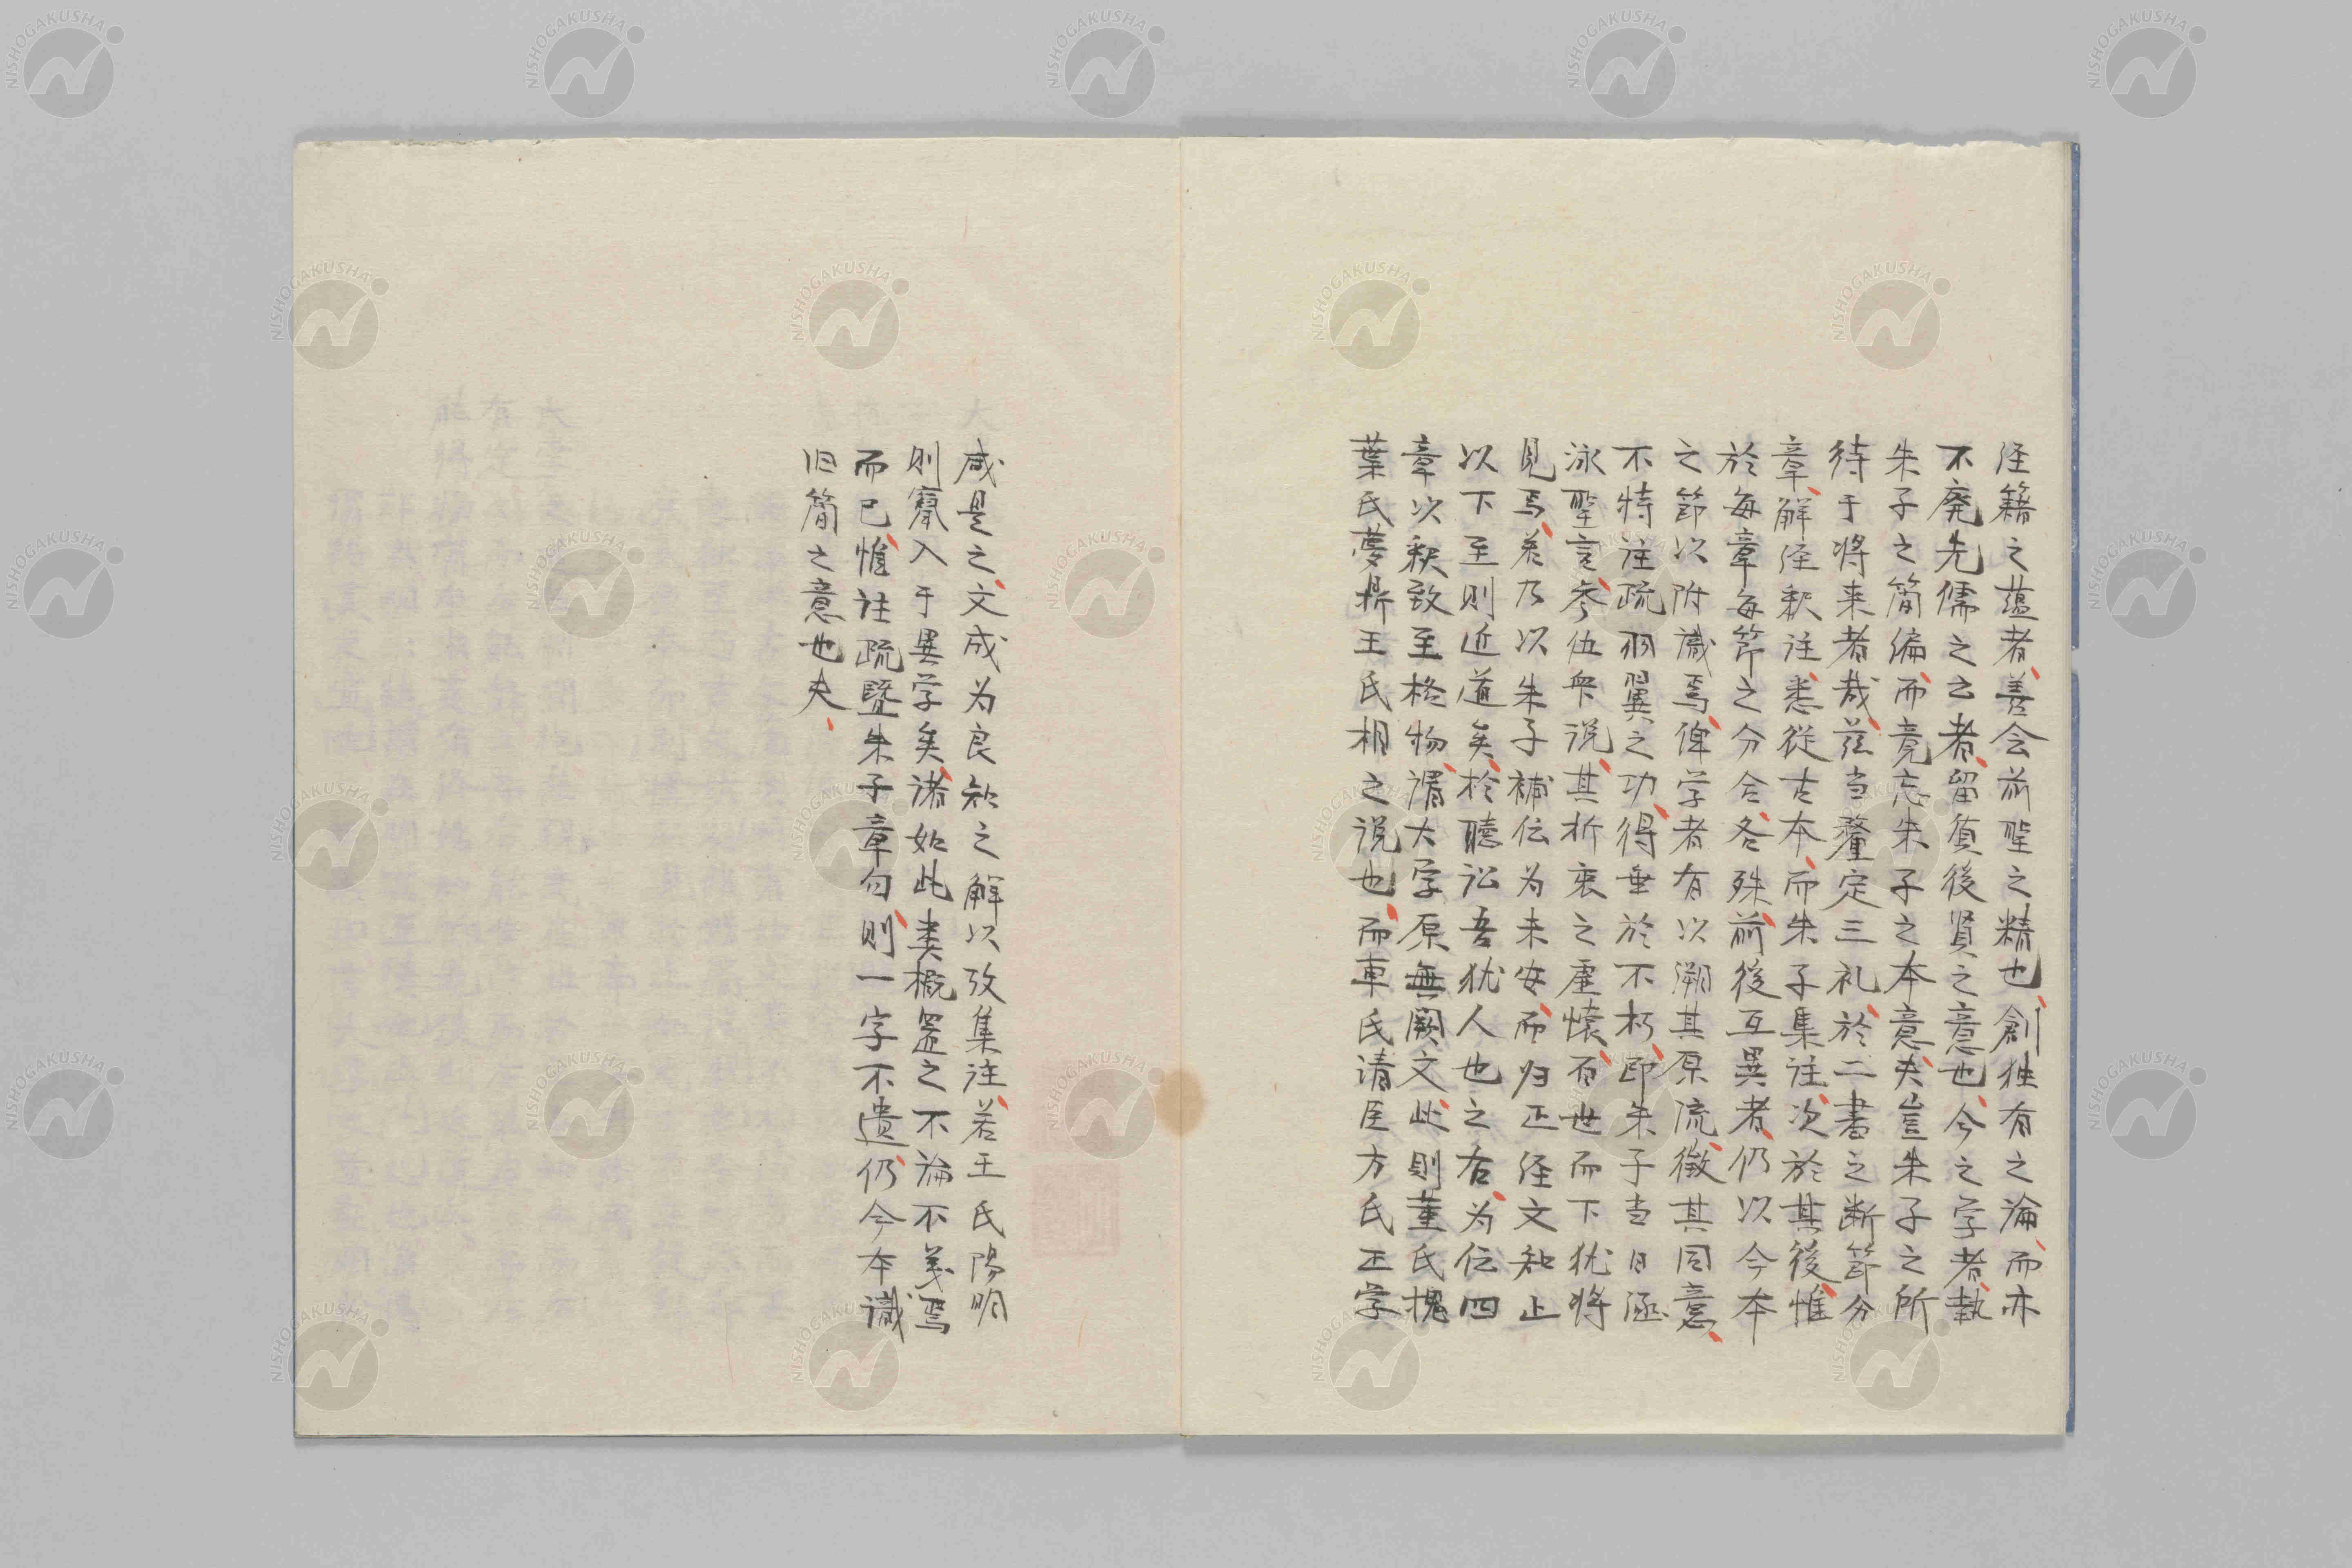 径籍之蕴者、善会前聖之精也、創独有之論、而亦
不廃先儒之之者、留負後賢之意也、今之学者、執
朱子之簡編、而竟忘朱子之本意夫、豈朱子之所
待于将来者哉、茲当釐定三礼、於二書之断節分
章、解径釈注、悉従古本、而朱子集注、次於其後、惟
於每章每節之分合、各殊、前後互異者、仍以今本
之節以附識焉、俾学者有以溯其原流、徴其同意、
不特注疏羽翼之功、得垂於不朽、即朱子当日涵
泳聖言、参伍衆说、其折衷之虚懐、百世而下犹将
見焉、若乃以朱子補伝为未安、而归正径文知止
以下至则近道矣、於聴訟吾犹人也之右、为伝四
章以釈致至格物、謂大学原無闕文、此则董氏槐
葉氏夢鼎王氏相之说也、而車氏清臣方氏正学
咸是之、文成为良知之解以攷集注、若王氏陽明
则竄入于異学矣、諸如此类概置之不論不義焉
而已、惟註疏暨朱子章句、则一字不遗、仍今本識
旧簡之意也夫、
NISHOGAKUSHA